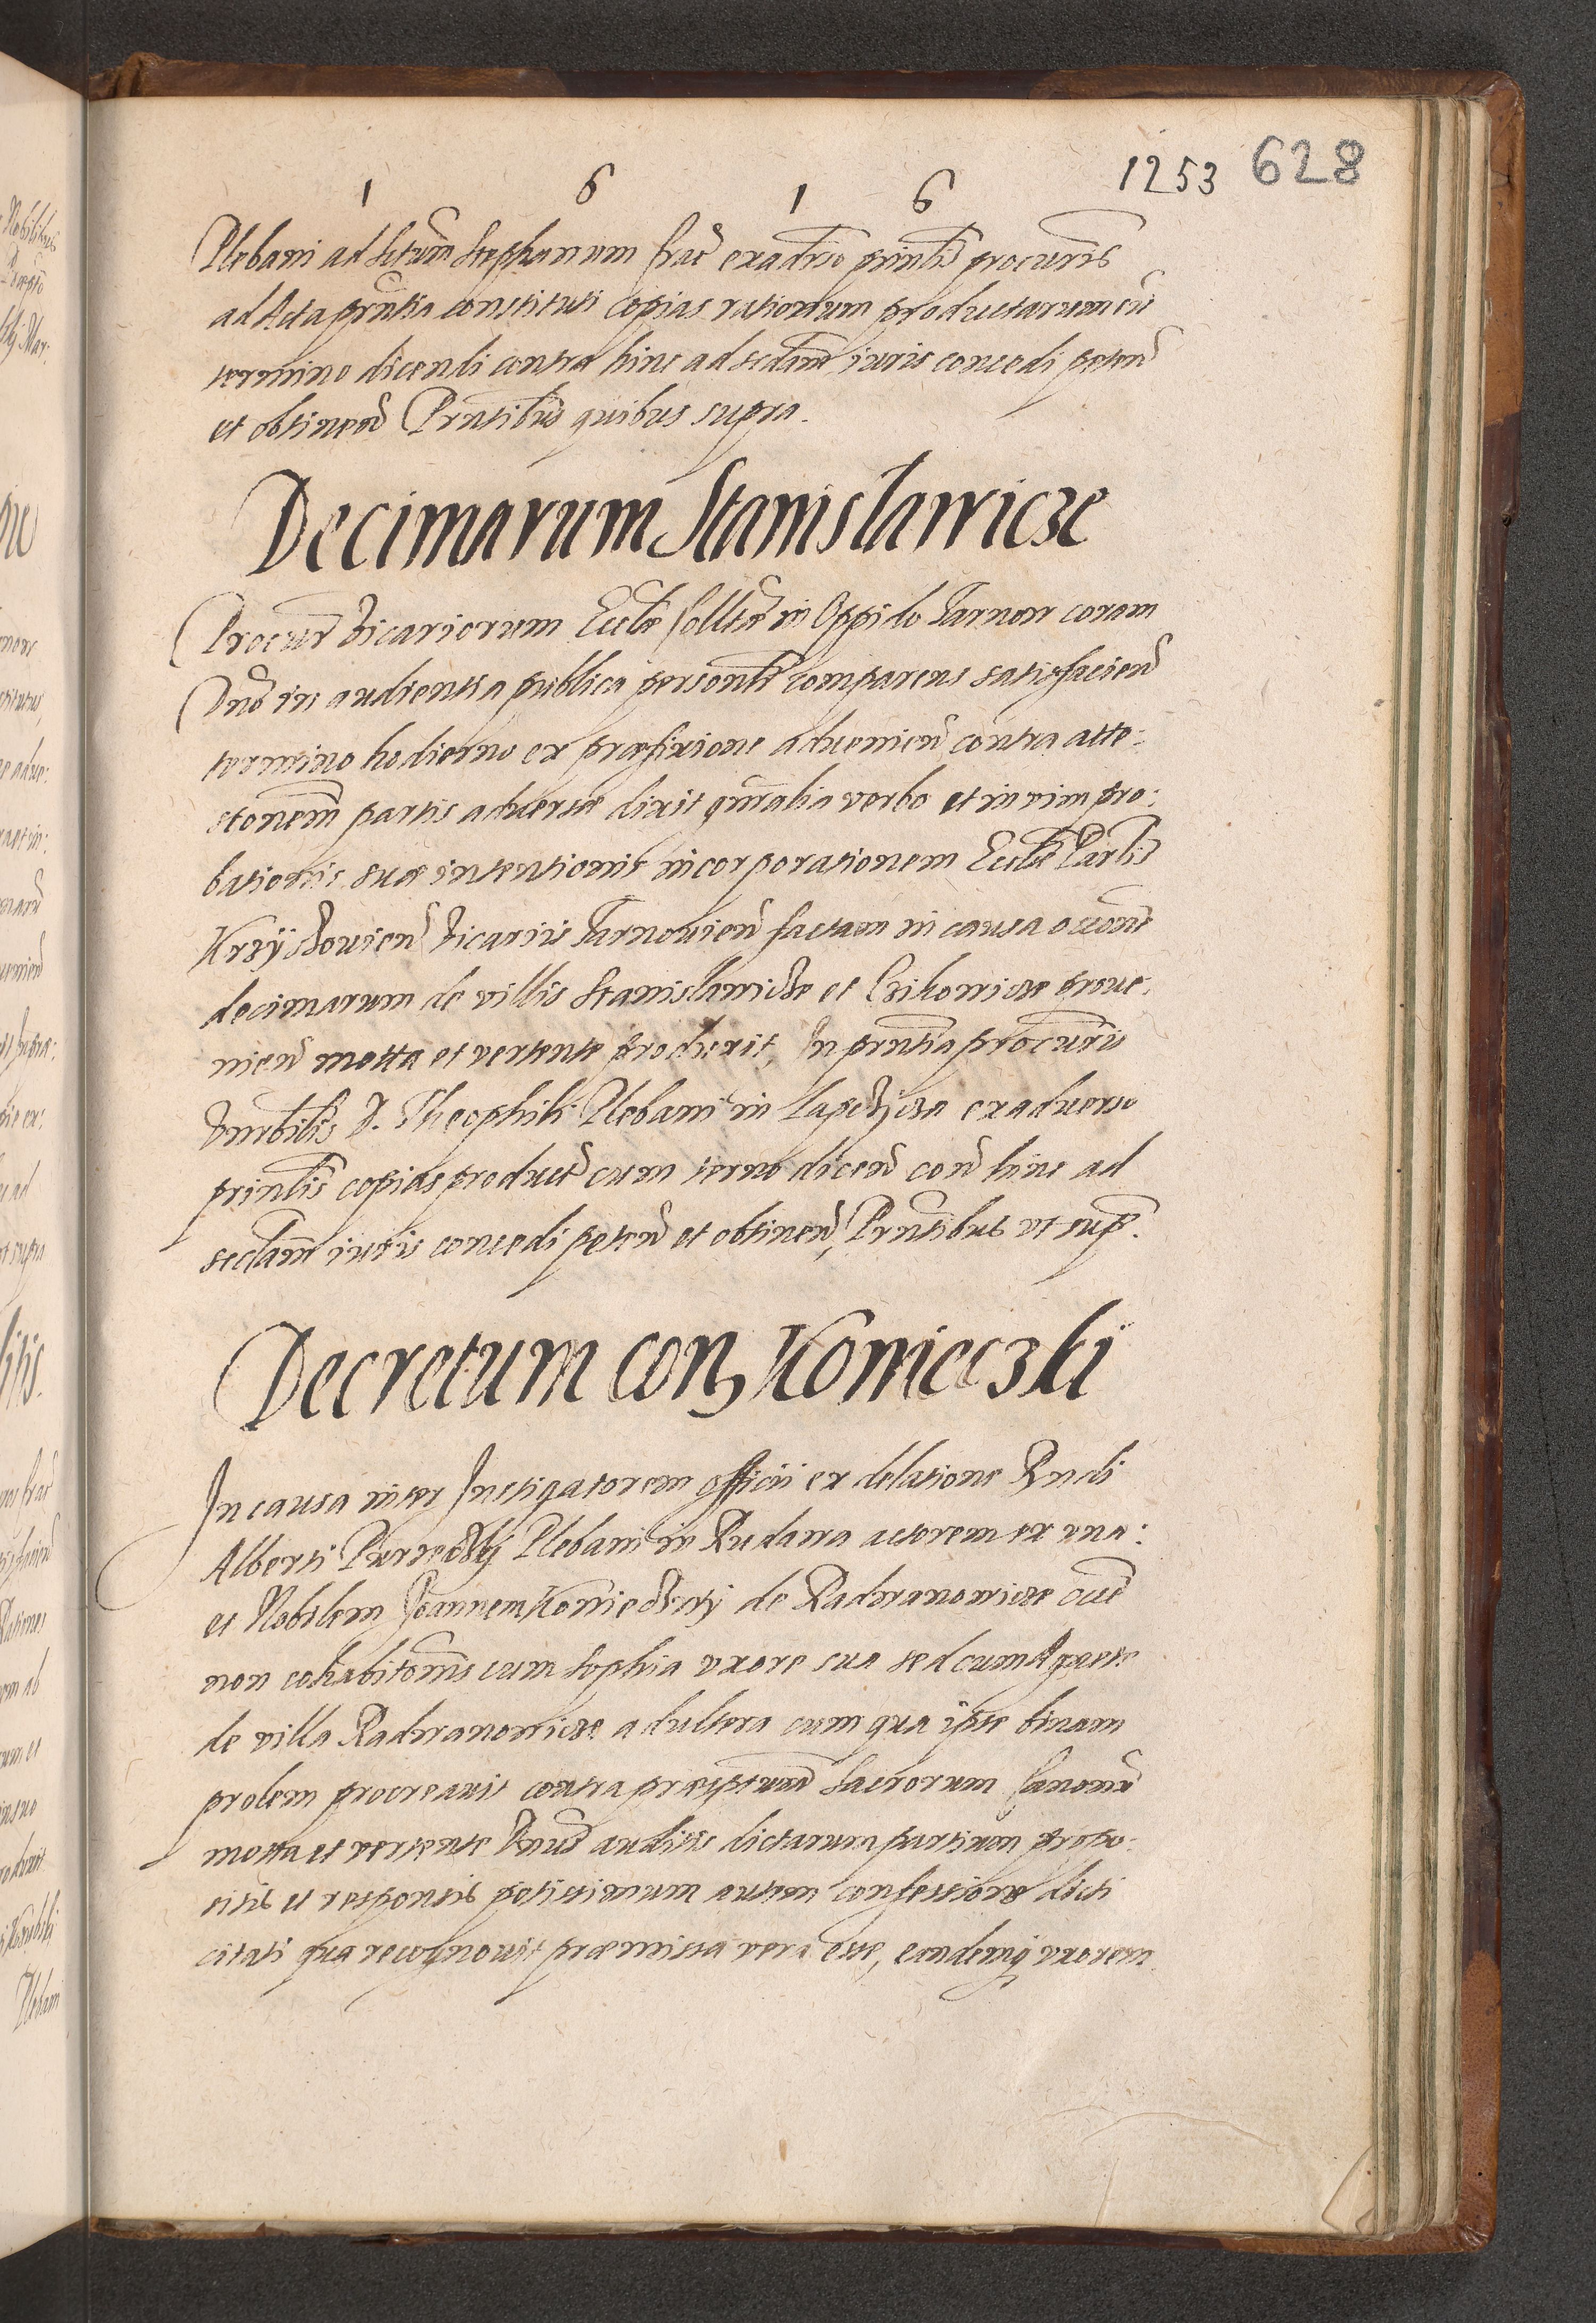 1253 628
1 6 1 6
Plebani ad Sctum Stephanum Crac exadverso prinlis procuris
ad Acta prntia constituti copias rationum productarum cu
termino dicendi contra hinc ad secdam iuris concedi peten
et obtinen Prntibus quibus supra.
Decimarum Stanislawicze
Procur Vicariorum Ecclae Colltae in Oppido Tarnow coram
Dno in audientia publica personlr comparens satisfacien
termino hodierno ex praefixione advenien contra atte:
stonem partis adversae dixit gnralia verbo et in vim pro:
bationis suae intentionis incorporationem Ecclae Parlis
Krzyżowien Vicariis Tarnovien factam in causa occone
decimarum de villis Stanislawicze et Cikowicze prove:
nien motta et vertente produxit, In prntia procuris
Vnrbilis D. Theophili Plebani in Lapczyca exadverso
prinlis copias product cum termo dicen con hinc ad
secdam iuris concedi peten et obtinen, Prntibus vt sup.
Decretum con Konieczki
In causa inter Instigatorem officii ex delatione Rndi
Alberti Plebani in Rudawa actorem ex vna:
et Nobilem Joannem de Radwanowicze
non cohabitonis cum Sophia vxore sua sed cum Agnete
de villa Radwanowicze adultera cum qua ipse binam
prolem procreavit contra praeceptum Sacrorum Canonu
motta et vertente Dnus auditis dictarum partium propo:
sitis et responsis potissimum autem confessione dicti
citati qua recognovit praemissa vera esse, eandemq vxorem